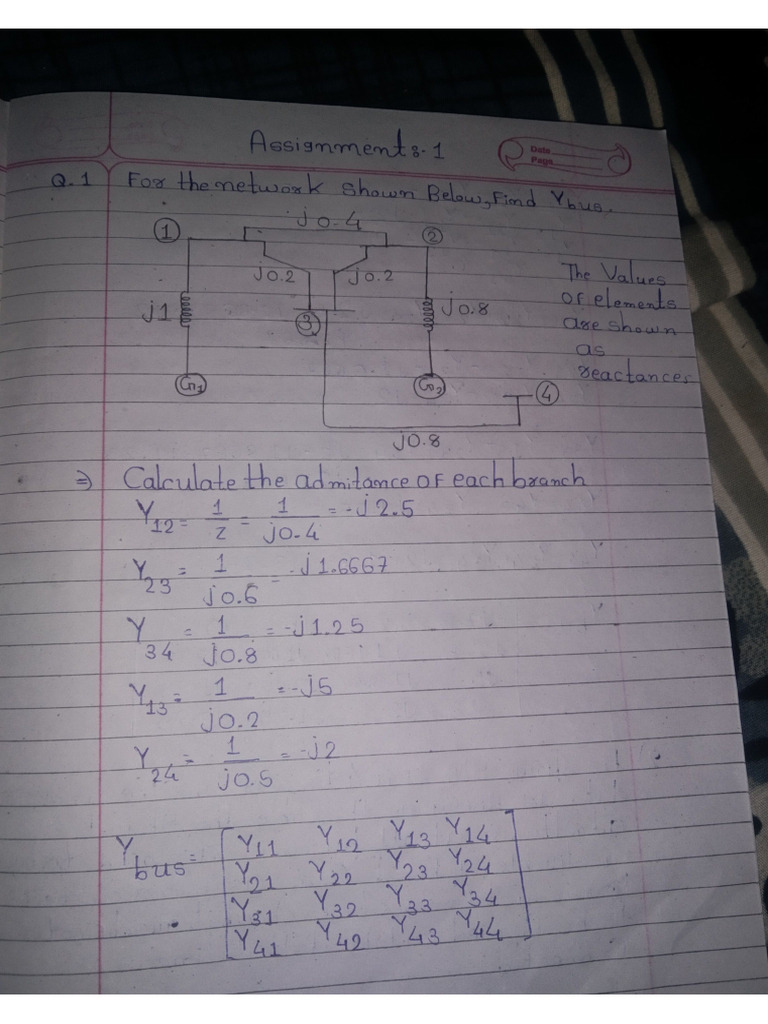 Assignment :- 1
Date
Page
Q.1 For the network shown Below, Find Ybus.
j0.4
① ②
j0.2 j0.2
The Values
of elements
are shown
as
reactances
j1 ③ j0.8
G1 G2 ④
j0.8
⇒ Calculate the admitance of each branch
Y12 = 1/z = 1/j0.4 = -j2.5
Y23 = 1/j0.6 = -j1.6667
Y34 = 1/j0.8 = -j1.25
Y13 = 1/j0.2 = -j5
Y24 = 1/j0.5 = -j2
Ybus =
Y11 Y12 Y13 Y14
Y21 Y22 Y23 Y24
Y31 Y32 Y33 Y34
Y41 Y42 Y43 Y44